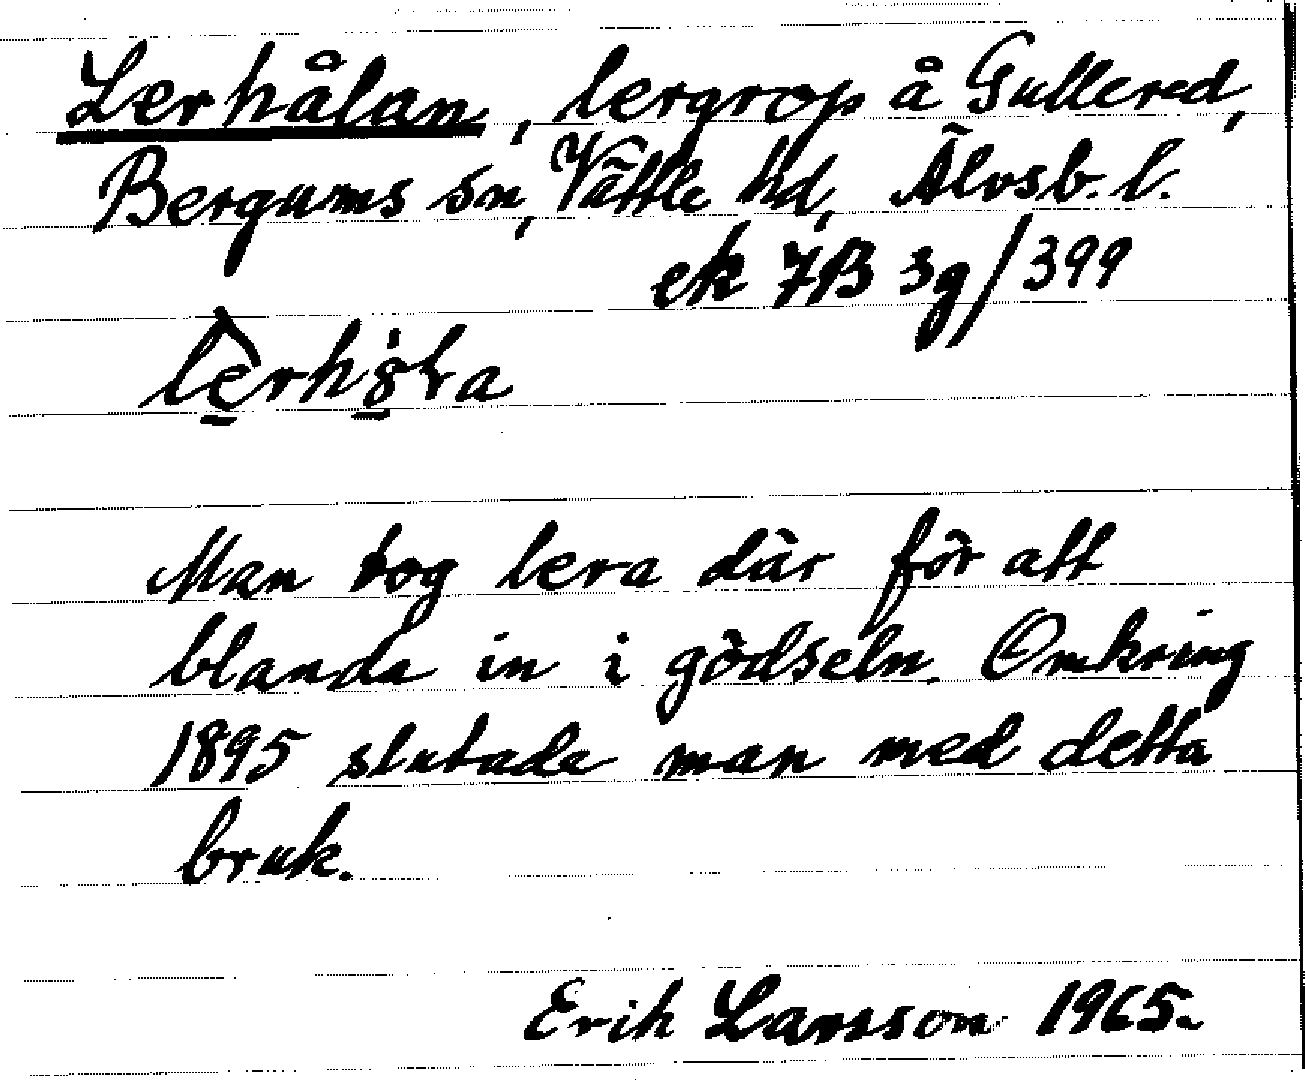 Lerhålan, lergrop å Gullered,
Bergums sn, Vättle hd, Älvsb. l.
ek 7B 3g/399
Man tog lera där för att
blanda in i gödseln. Omkring
1895 slutade man med detta
bruk.
Erik Larsson 1965.